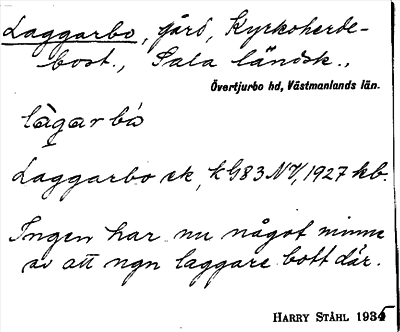 Laggarbo, gård, Kyrkoherde-
bost., Sala landsk.,
Övertjurbo hd, Västmanlands län.
làgar bò
Laggarbo ek, kG83 NV, 1927 kb.
Ingen har nu något minne
av att ngn laggare bott där.
HARRY STÅHL 1935